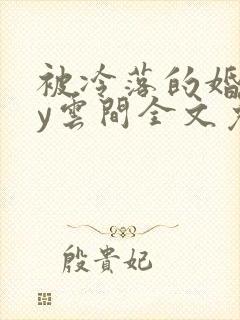 被冷落的婚
y雲間全文
殷貴妃